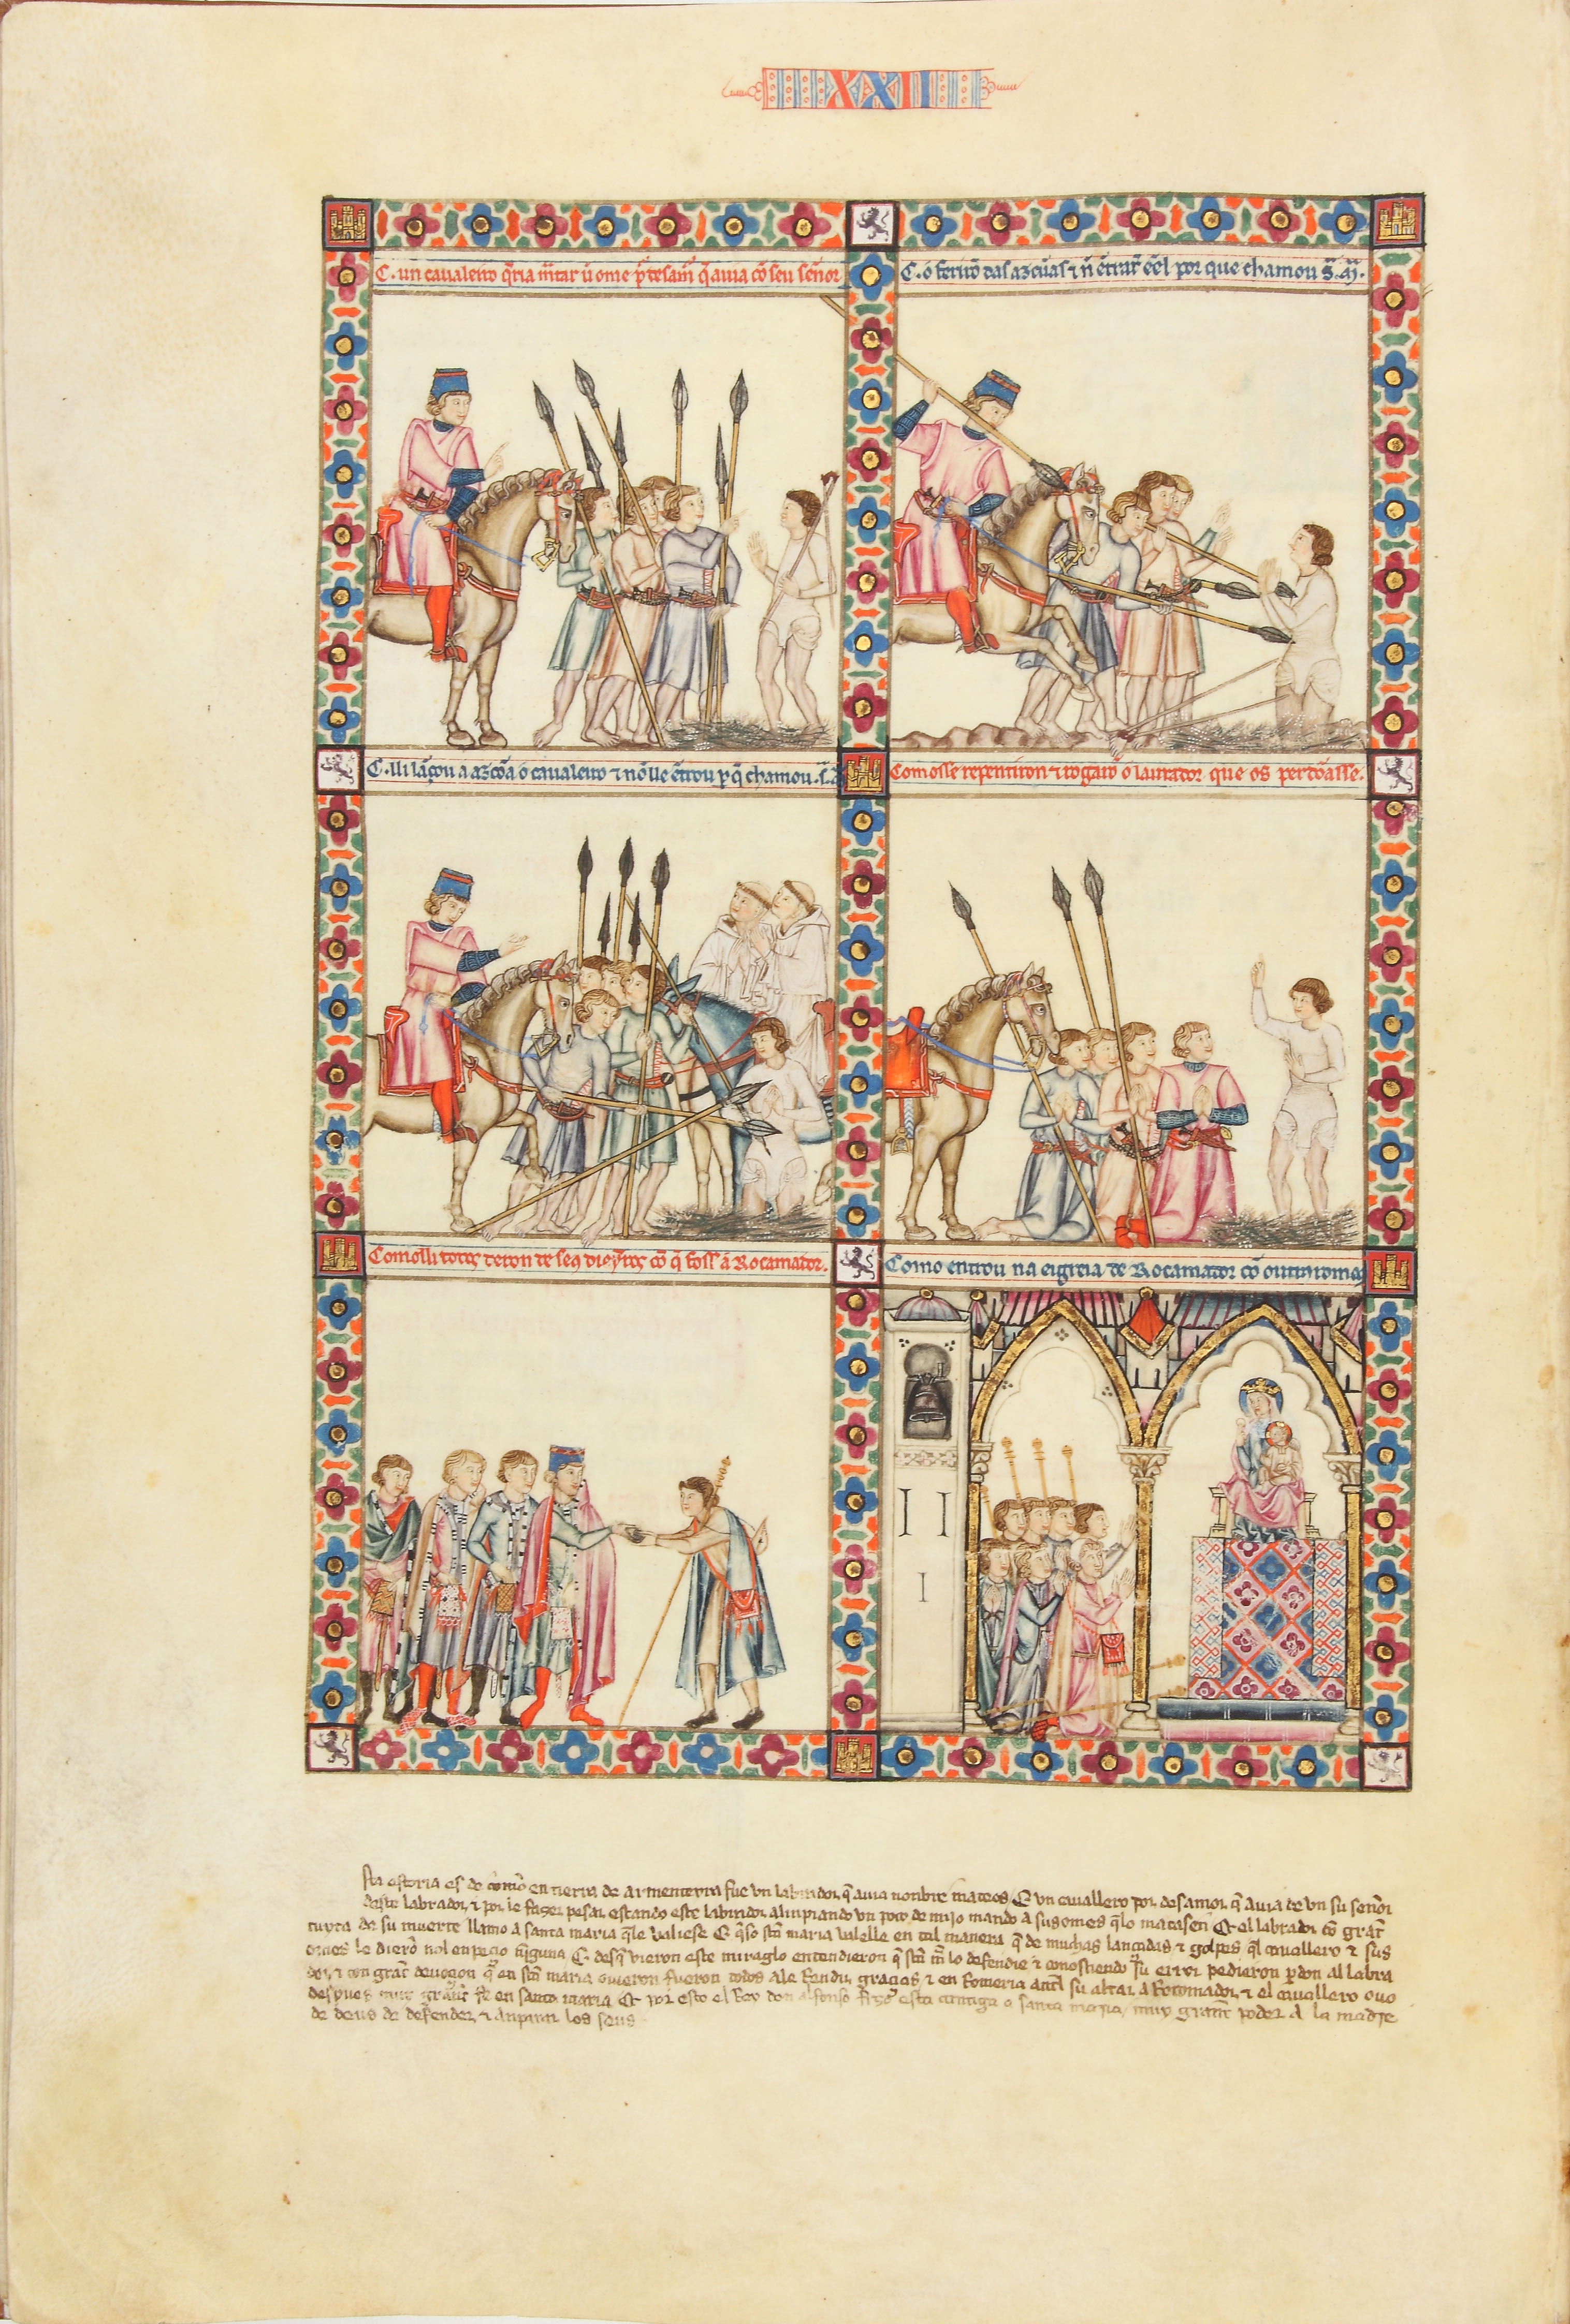 XXII
C. un cavaleiro q̃ria mãtar ũ ome p̃ desam̃ q̃ avia cõ seu señor
C. o ferirõ das azcũas ⁊ ñ ẽtrar̃ ẽel por que chamou S. M.
C. lli lãçou a azcõa o cavaleiro ⁊ nõ lle ẽtrou p q̃ chamou S.
Comosse repentiron ⁊ rogarõ o laurador que os perdõasse.
Comolli todos deron de seos dỹeiros cõ q̃ foss a Rocamador.
Como entrou na eigreia de Rocamador cõ outr romeu
sta estoria es de como en tierra de armenteyra fue vn labrador q̃ auia nonbre mateos. E vn cauallero por desamor q̃ auia de vn su señor
deste labrador ⁊ por le fazer pesar estando este labrador alinpiando vn poco de mijo mando a sus omes q̃ lo matasen Et el labrador cõ grãt
cuyta de su muerte llamo a santa maria q̃ le valiese E q̃so stã maria valelle en tal manera q̃ de muchas lançadas ⁊ golpes q̃l cauallero ⁊ sus
omes le dierõ nol enpecio nĩguna E desq̃ vieron este miraglo entendieron q̃ stã mã lo defendie ⁊ conosciendo su error pedieron pdon al labra
dor ⁊ con grãt deuoçon q̃ en stã maria ouieron fueron todos a le Rendir gracias ⁊ en Romeria antl su altar a Rocamador ⁊ el cauallero ouo
despues muy grãt fe en santa maria Et por esto el Rey don alfonso fizo esta cantiga a santa maria muy grãt poder a la madre
de deus de defender ⁊ anparar los seus